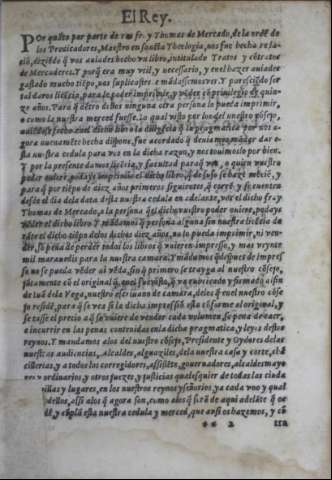 El Rey.
POr quãto por parte de vos fr. y Thomas de Mercado, de la ordẽ de
los Predicadores, Maestro en sancta Theologia, nos fue hecha rela-
ciõ, diziẽdo q̃ vos auiades hecho vn libro, intitulado Tratos y cõtratos
de Mercaderes. Y porq̃ era muy vtil, y necessario, y en el hazer auiades
gastado mucho tiẽpo, nos suplicastes e mãdassemos ver. Y paresciẽdo ser
tal daros licẽcia, para lo poder imprimir, y vẽder cõ priuilegio de quin-
ze años. Para q̃ dẽtro dellos ninguna otra persona lo pueda imprimir,
o como la nuestra merced fuesse. Lo qual visto por los del nuestro cõsejo,
dicho libro la diligẽcia q̃ la pragmatica por nos a-
gora nueuamẽte hecha dispone, fue acordado q̃ deuiamos mãdar dar e-
sta nuestra cedula para vos en la dicha razon, y nos tuuimoslo por bien.
Y por la presente damos licẽcia, y facultad para q̃ vos, o quien vuestro
poder ouiere podays imprimir el dicho libro, q̃ de suso se haze mẽciõ, y
para q̃ por tiẽpo de diez años primeros siguientes, q̃ corrã y se cuenten
desde el dia de la data desta nuestra cedula en adelante, vos el dicho fr. y
Thomas de Mercado, o la persona q̃ el dicho vuestro poder ouiere, podays
vẽder el dicho libro. Y mãdamos q̃ persona alguna sin nuestra licẽcia du-
rãte el dicho tiẽpo de los dichos diez años, no lo pueda imprimir, ni ven-
der, so pena de perder todos los libros q̃ vuieren impresso, y mas veynte
mil marauedis para la nuestra camara. Y mãdamos q̃ despues de impres-
so no se pueda vẽder ni vẽda, sin q̃ primero se trayga al nuestro cõsejo,
juntamente cõ el original q̃ en el fue visto, q̃ va rubricado y firmado al fin
de Iuã de la Vega, nuestro escriuano de camara, de los q̃ en el nuestro cõse-
jo residẽ, para q̃ se vea si la dicha impressiõ esta cõforme al original, y
se tasse el precio a q̃ se ouiere de vender cada volumen, so pena de caer,
e incurrir en las penas contenidas en la dicha pragmatica, y leyes destos
reynos. Y mandamos a los del nuestro cõsejo, Presidente y Oydores de las
nuestras audiencias, Alcaldes, alguaziles, de la nuestra casa y corte, chã-
cillerias, y a todos los corregidores, assistẽte, gouernadores, alcaldes mayo-
res y ordinarios, y otros juezes, y justicias qualesquier de todas las ciuda
villas y lugares, en los nuestros reynos y señorios, y a cada vno y qual
dellos, assi a los q̃ agora son, como a los q̃ serã de aqui adelãte q̃ os
dẽ, y cũplã esta nuestra cedula y merced, que ansi os hazemos, y cõ
** 2 tra